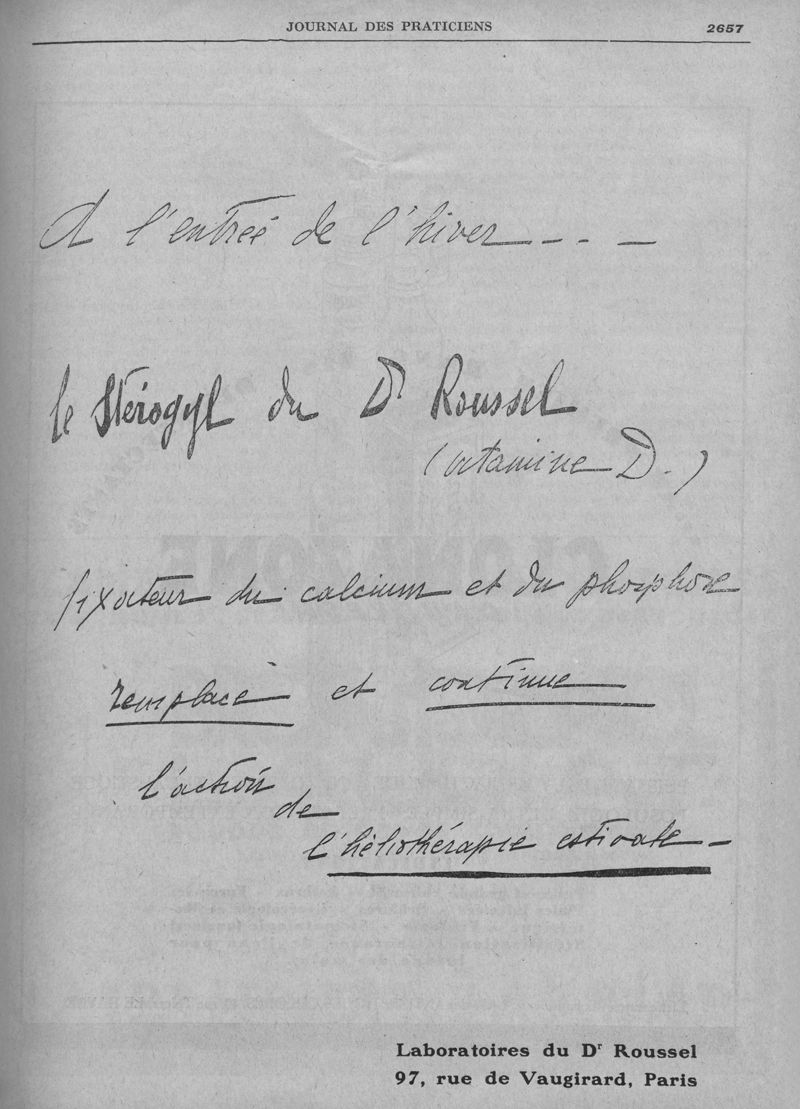 JOURNAL DES PRATICIENS 2657
A l'entrée de l'hiver - - - -
le Stérogyl du Dr Roussel
(vitamine D.)
fixateur du calcium et du phosphore
remplace et continue
l'action
de
l'héliothérapie estivale -
Laboratoires du Dr Roussel
97, rue de Vaugirard, Paris